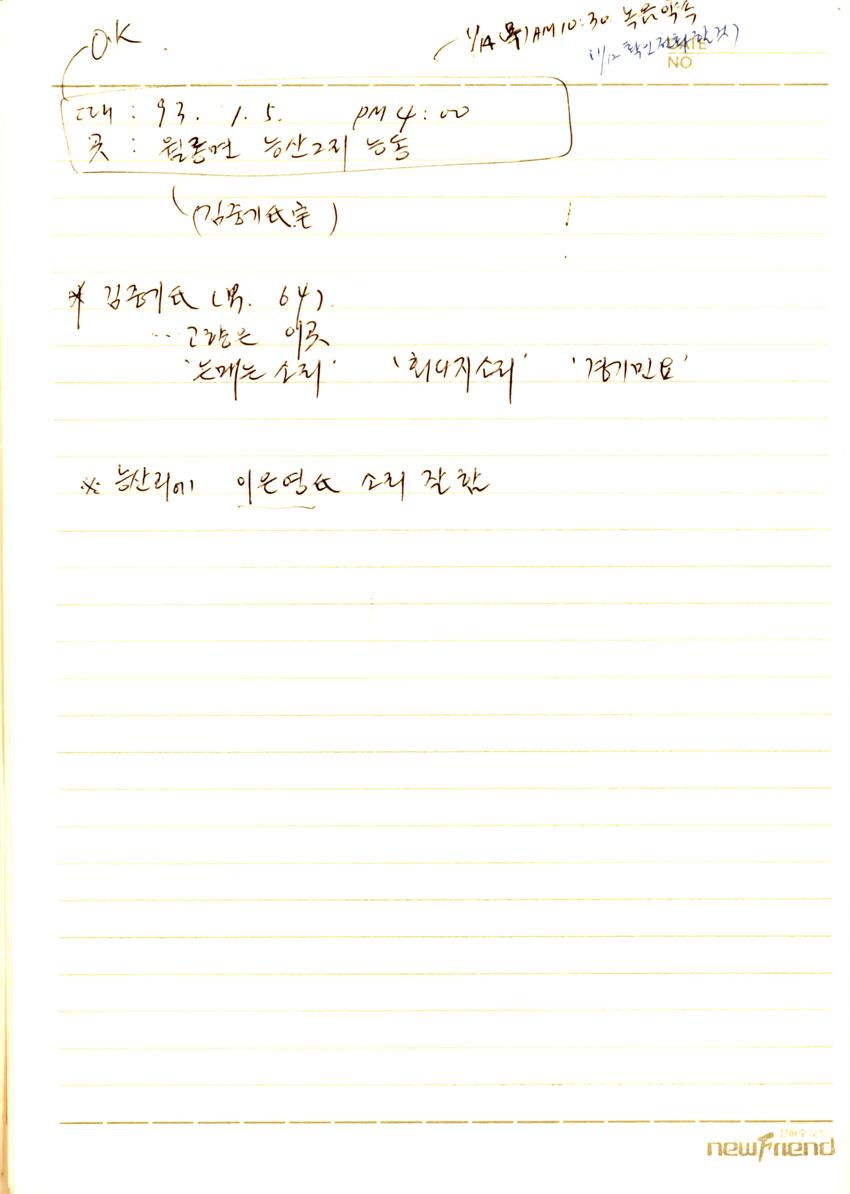 OK
1/14 (목) AM 10:30 녹음약속
(1/12 확인전화 할 것)
DATE
NO
때 : 93. 1. 5. PM 4:00
곳 : 월롱면 능산2리 능동
(김중기氏宅)
* 김중기氏 (男. 64).
… 고향은 이곳
'논매는 소리' '회다지소리' '경기민요'
※ 능산리에 이은영氏 소리 잘 함
newFriend